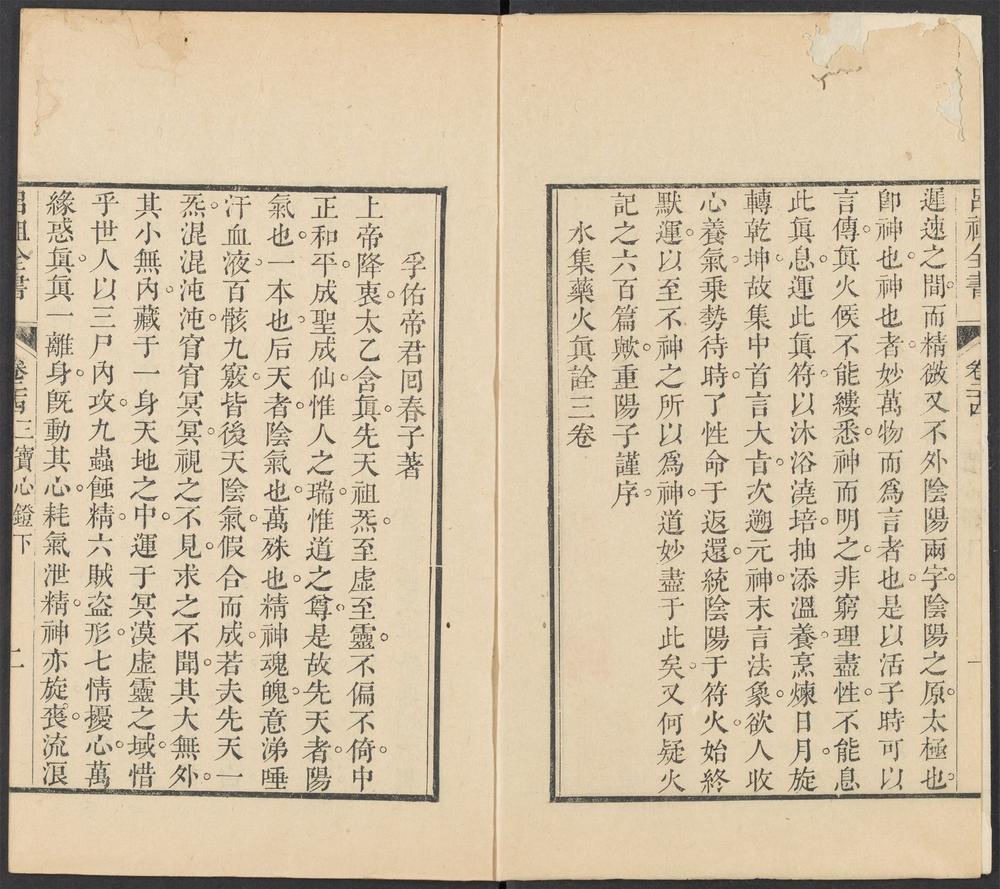 呂祖全書
卷二十四
一
遲速之間而精微又不外陰陽兩字陰陽之原太極也
卽神也神也者妙萬物而爲言者也是以活子時可以
言傳眞火候不能縷悉神而明之非窮理盡性不能息
此眞息運此眞符以沐浴澆培抽添溫養烹煉日月旋
轉乾坤故集中首言大㫖次遡元神末言法象欲人收
心養氣乗勢待時了性命于返還統陰陽于符火始終
默運以至不神之所以爲神道妙盡于此矣又何疑火
記之六百篇歟重陽子謹序
水集藥火眞詮三卷
孚佑帝君囘春子著
上帝降衷太乙含眞先天祖炁至虛至靈不偏不倚中
正和平成聖成仙惟人之瑞惟道之尊是故先天者陽
氣也一本也后天者陰氣也萬殊也精神魂魄意涕唾
汗血液百骸九竅皆後天陰氣假合而成若夫先天一
炁混混沌沌窅窅冥冥視之不見求之不聞其大無外
其小無內藏于一身天地之中運于冥漠虛靈之域惜
乎世人以三尸內攻九蟲蝕精六賊盜形七情擾心萬
緣惑眞眞一離身旣動其心耗氣泄精神亦旋喪流浪
呂祖全書
卷二十四 三寶心鐙下
二